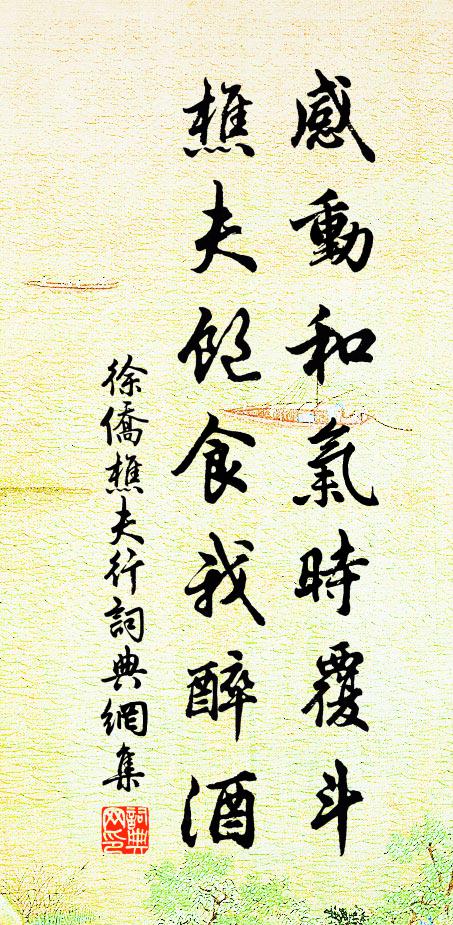 感動和氣時覆斗
樵夫飽食我醉酒
徐僑樵夫行詞典網集
詞典
网印